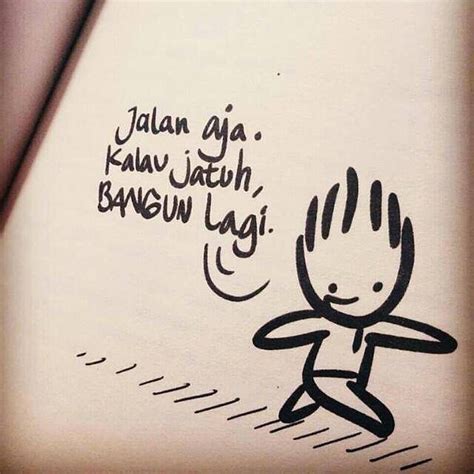 Jalan aja.
Kalau jatuh,
BANGUN Lagi.